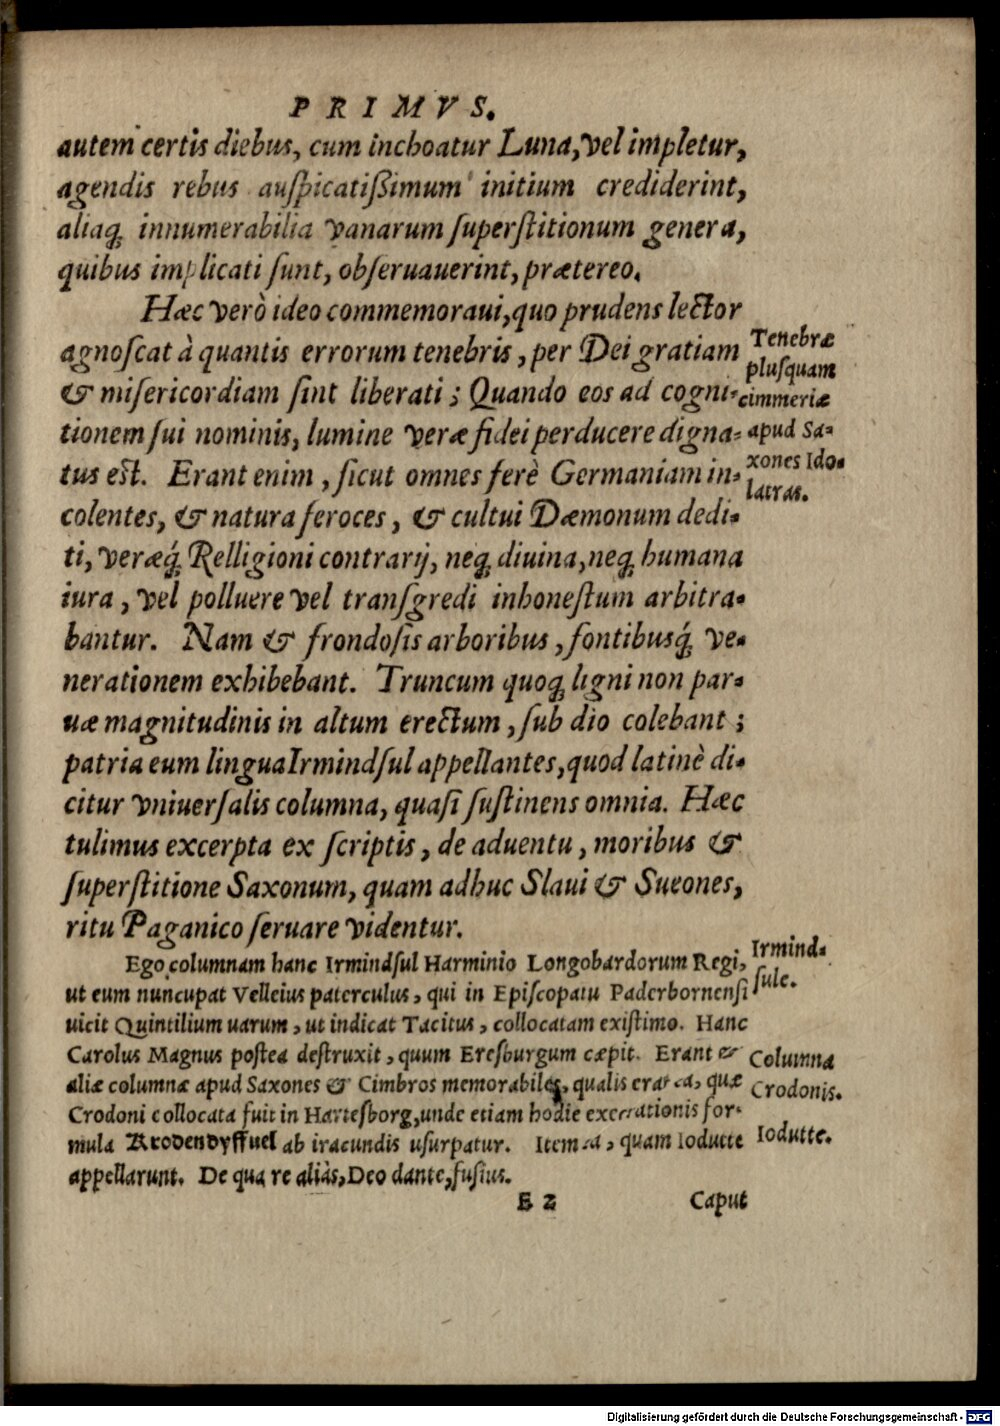 PRIMVS.
autem certis diebus, cum inchoatur Luna, vel impletur,
agendis rebus auspicatißimum initium crediderint,
aliaq́; innumerabilia vanarum superstitionum genera,
quibus implicati sunt, obseruauerint, prætereo.
Hæc verò ideo commemoraui, quo prudens lector
agnoscat à quantis errorum tenebris, per Dei gratiam
& misericordiam sint liberati; Quando eos ad cogni-
tionem sui nominis, lumine veræ fidei perducere digna-
tus est. Erant enim, sicut omnes ferè Germaniam in-
colentes, & natura feroces, & cultui Dæmonum dedi-
ti, veræq́; Relligioni contrarij, neq; diuina, neq; humana
iura, vel polluere vel transgredi inhonestum arbitra-
bantur. Nam & frondosis arboribus, fontibusq́; ve-
nerationem exhibebant. Truncum quoq; ligni non par-
uæ magnitudinis in altum erectum, sub dio colebant;
patria eum lingua Irmindsul appellantes, quod latinè di-
citur vniuersalis columna, quasi sustinens omnia. Hæc
tulimus excerpta ex scriptis, de aduentu, moribus &
superstitione Saxonum, quam adhuc Slaui & Sueones,
ritu Paganico seruare videntur.
Tenebræ
plusquam
cimmeriæ
apud Sa-
xones Ido-
latras.
Ego columnam hanc Irmindsul Harminio Longobardorum Regi,
ut eum nuncupat Velleius paterculus, qui in Episcopatu Paderbornensi
uicit Quintilium uarum, ut indicat Tacitus, collocatam existimo. Hanc
Carolus Magnus postea destruxit, quum Eresburgum cæpit. Erant &
aliæ columnæ apud Saxones & Cimbros memorabiles, qualis erat ea, quæ
Crodoni collocata fuit in Hartesborg, unde etiam hodie execrationis for-
mula Krodendyffuel ab iracundis usurpatur. Item ea, quam Iodutte
appellarunt. De qua re aliàs, Deo dante, fusius.
Irmind-
sule.
Columna
Crodonis.
Iodutte.
E 2
Caput
Digitalisierung gefördert durch die Deutsche Forschungsgemeinschaft - DFG